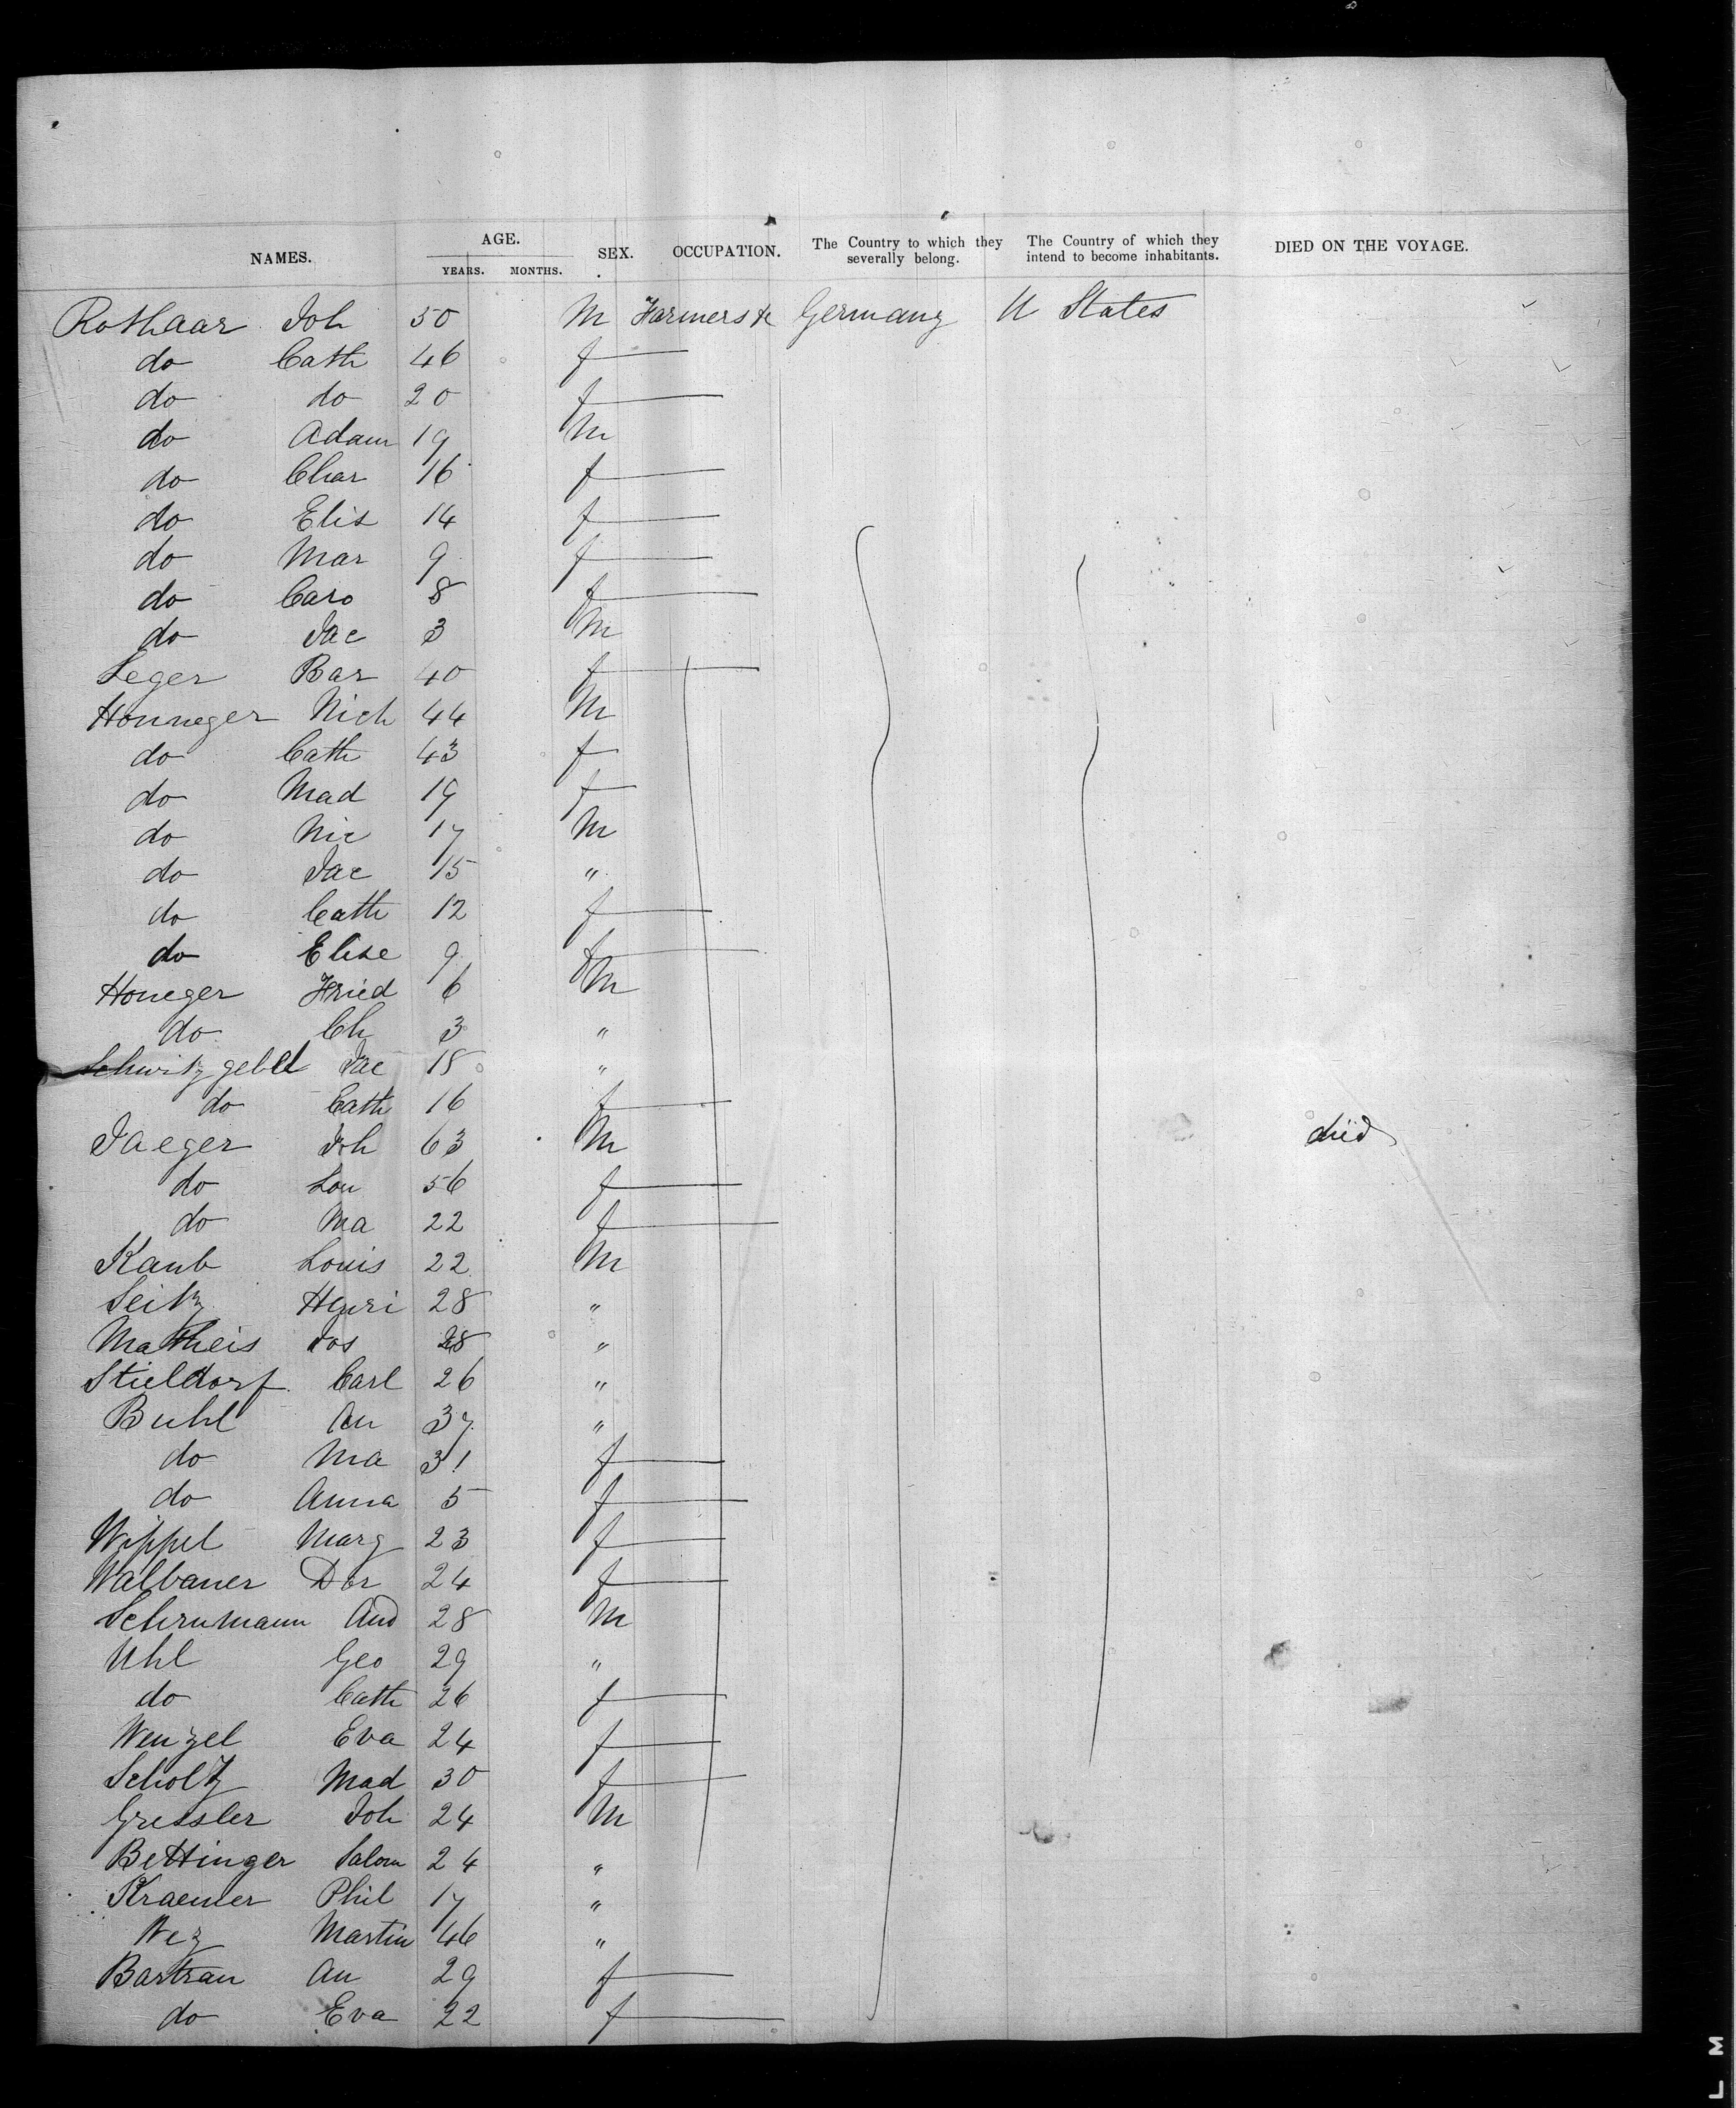 NAMES. AGE. YEARS. MONTHS. SEX. OCCUPATION. The Country to which they severally belong. The Country of which they intend to become inhabitants. DIED ON THE VOYAGE.
Rothaar Joh 50 M Farmers &c Germany U States
do Cath 46 f
do do 20 f
do Adam 19 M
do Char 16 f
do Elis 14 f
do Mar 9 f
do Caro 8 f
do Jac 3 M
Seger Bar 40 f
Honneger Nich 44 M
do Cath 43 f
do Mad 19 f
do Nic 17 M
do Jac 15 "
do Cath 12 f
do Elise 9 f
Honeger Fried 6 M
do Ch 3 "
Schwitzgebel Jac 18 "
do Cath 16 f
Jaeger Joh 63 M died
do Lou 56 f
do Ma 22 f
Kaub Louis 22 M
Seitz Henri 28 "
Matheis Jos 28 "
Stieldorf Carl 26 "
Buhl An 37 "
do Ma 31 f
do Anna 5 f
Wippel Marg 23 f
Walbauer Dor 24 f
Schrumann And 28 M
Uhl Geo 29 "
do Cath 26 f
Wenzel Eva 24 f
Scholtz Mad 30 f
Gressler Joh 24 M
Bettinger Salom 24 "
Kraemer Phil 17 "
Wez Martin 46 "
Bartrau An 29 f
do Eva 22 f
L M